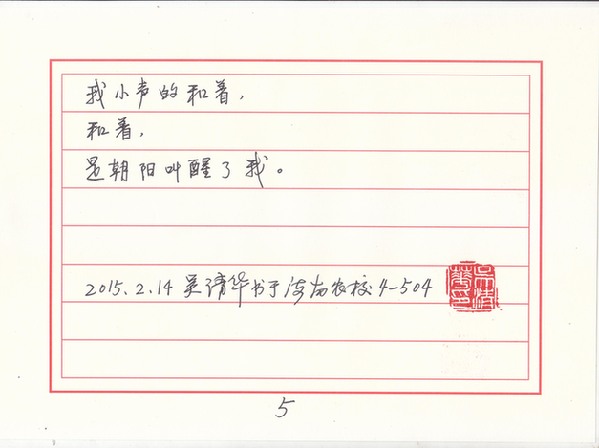 我小声的和着，
和着，
是朝阳叫醒了我。
2015.2.14 吴清华书于海南农校4-504
吴清華印
5